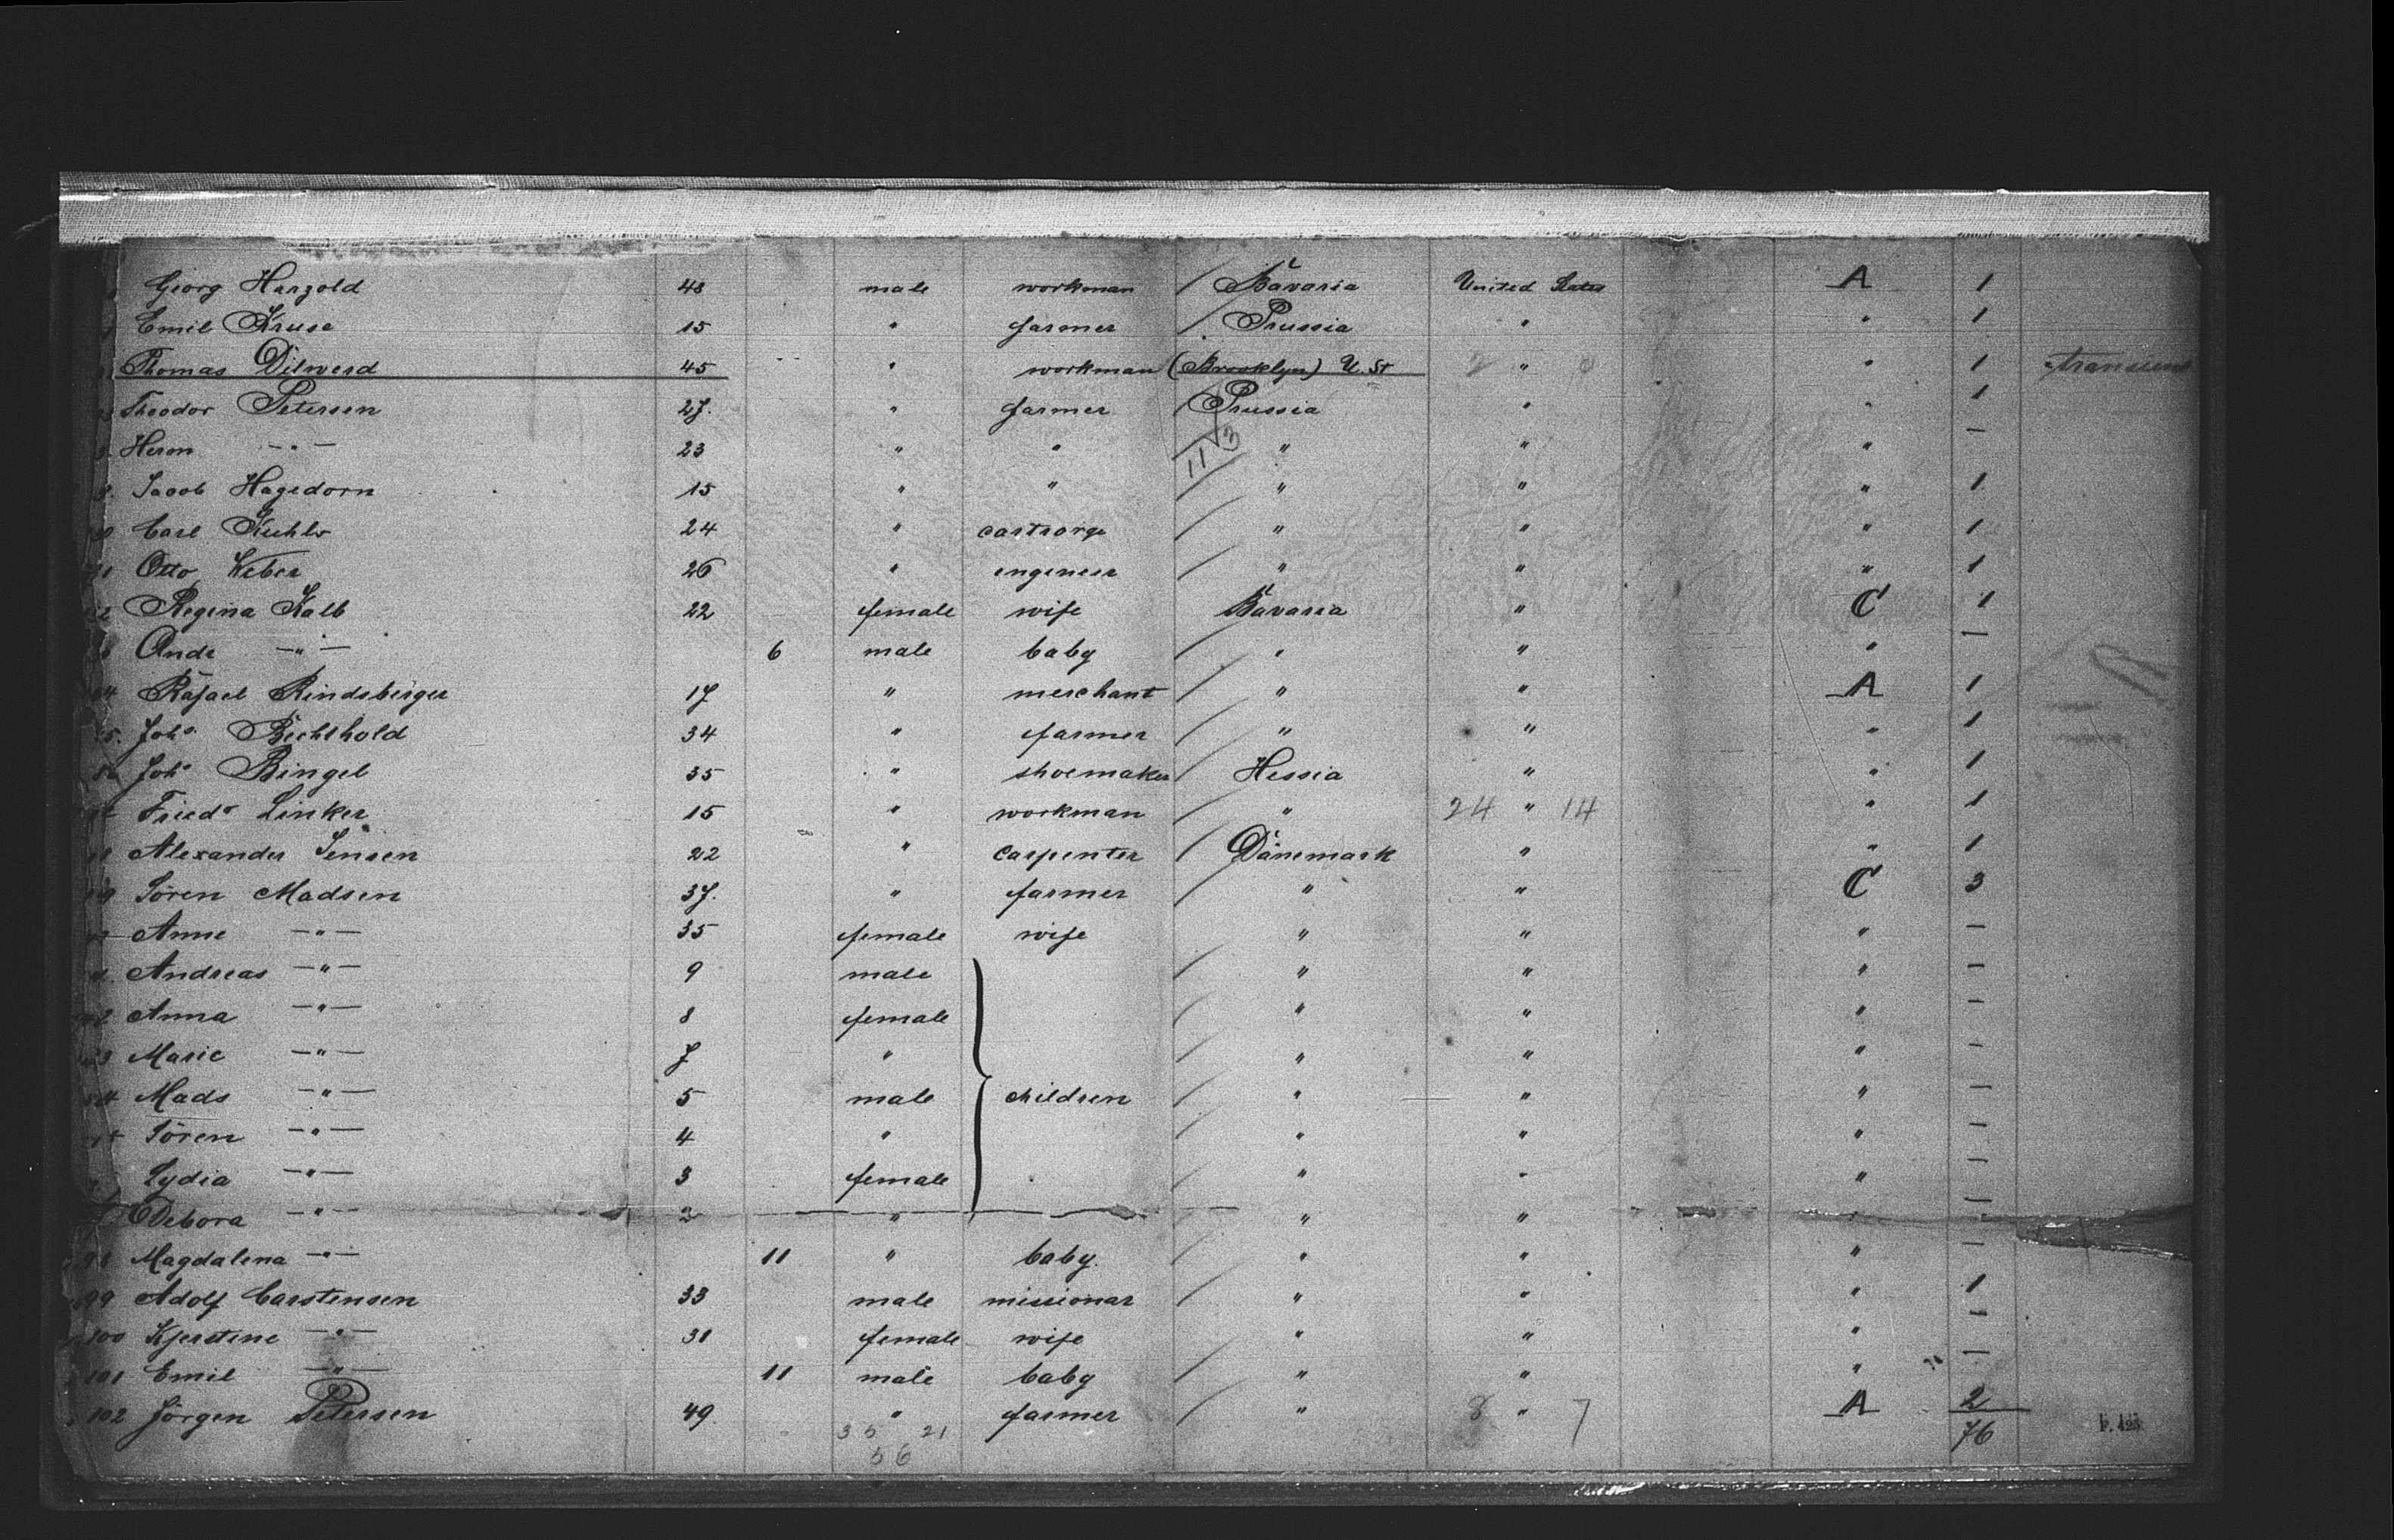 Georg Harzold 48 male workman Bavaria United States A 1
Emil Kruse 15 " farmer Prussia " " 1
Thomas Dilwerd 45 " workman (Brooklyn) U. St " " 1
Theodor Petersen 27. " farmer Prussia " " 1
Herm —"— 23 " " " " " —
Jacob Hagedorn 15 " " " " " 1
Carl 24 " " " " 1
Otto Weber 26 " engineer " " " 1
Regina Kalb 22 female wife Bavaria " C 1
Ande —"— 6 male baby " " " —
Rafael Rindsberger 17 " merchant " " A 1
Joh. Bechthold 34 " farmer " " " 1
Joh. Bingel 35 " shoemaker Hessia " " 1
Friedr Linker 15 " workman " 24 " 14 " 1
Alexander Jensen 22 " carpenter Dänemark " " 1
Sören Madsen 37. " farmer " " C 3
Anne —"— 35 female wife " " " —
Andreas —"— 9 male " " " —
Anna —"— 8 female " " " —
Marie —"— 7 " " " " —
Mads —"— 5 male children " " " —
Sören —"— 4 " " " " —
Lydia —"— 3 female " " " —
Debora —"— 2 " " " " —
98 Magdalena —"— 11 " baby. " " " —
99 Adolf Carstensen 33 male missionar " " " 1
100 Kjerstine —"— 31 female wife " " " —
101 Emil —"— 11 male baby " " " —
102 Jörgen Petersen 49 " farmer " 8 " 7 A 2
35 21 76
56